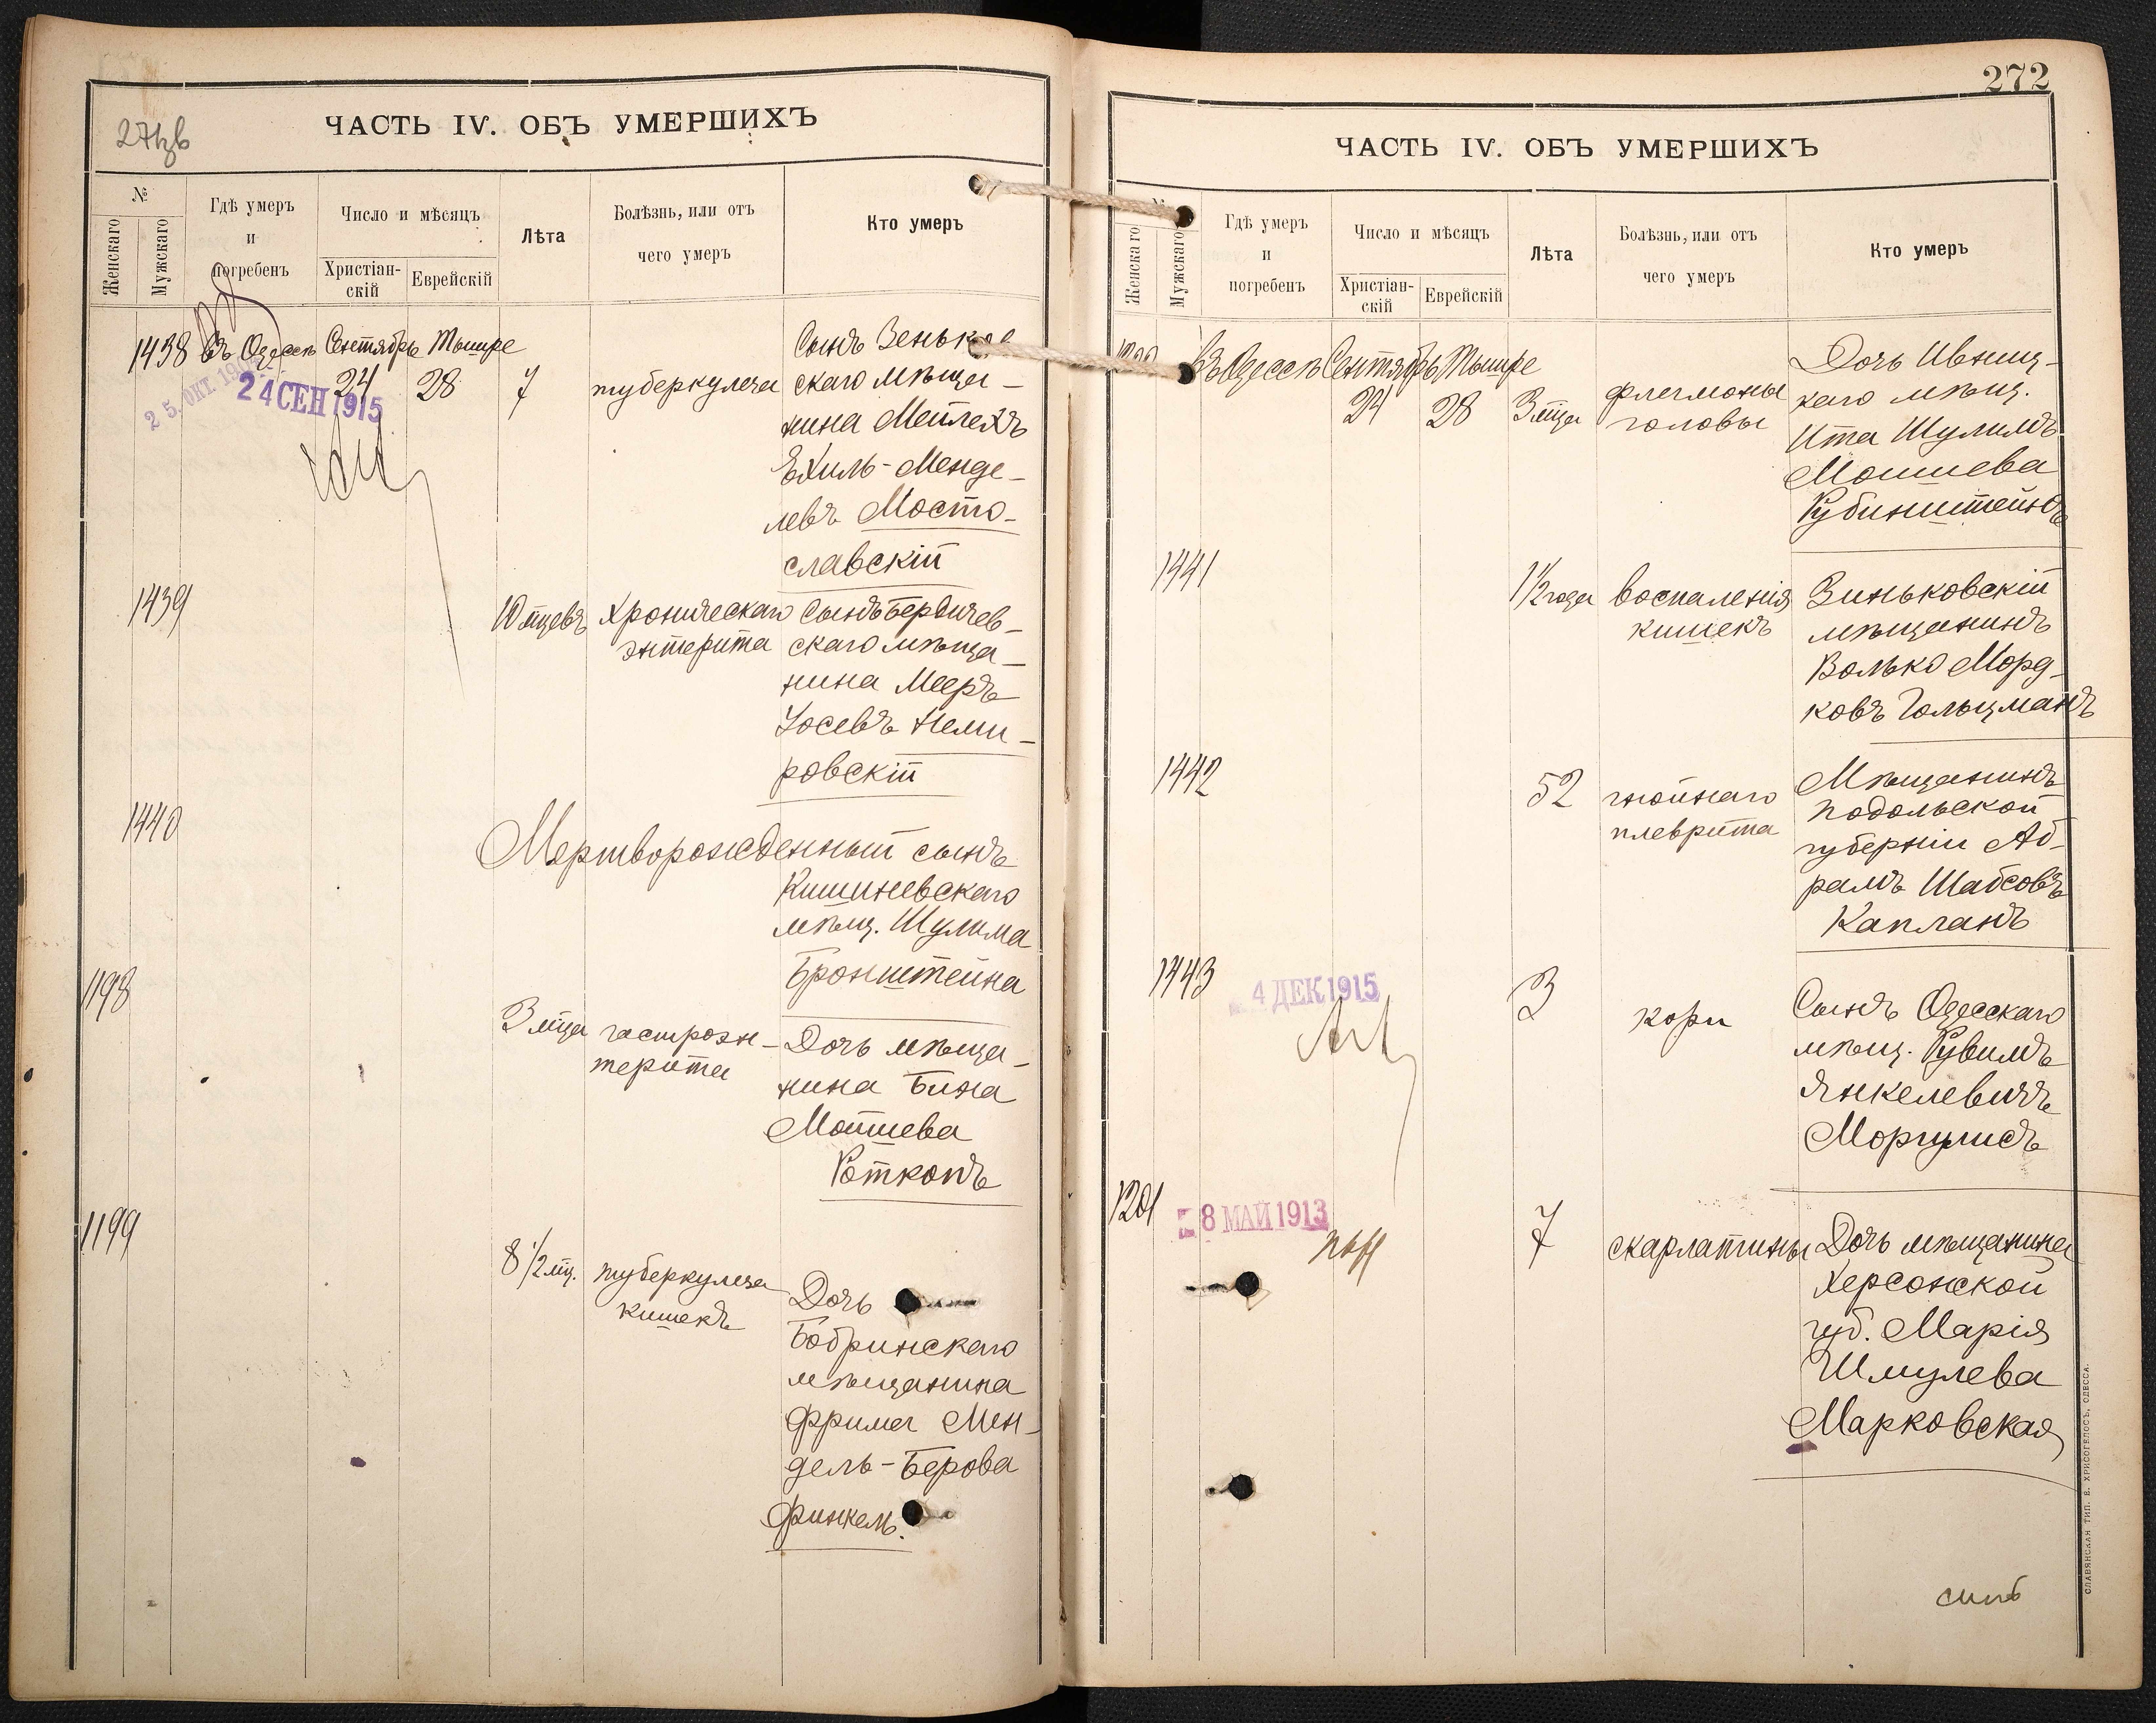 271об
ЧАСТЬ IV. ОБЪ УМЕРШИХЪ
№
Женскаго
Мужскаго
Гдѣ умеръ
и
погребенъ
Число и мѣсяцъ
Христіан-
скій
Еврейскій
Лѣта
Болѣзнь, или отъ
чего умеръ
Кто умеръ
1438 въ Одессѣ Сентябрь Тышре
24 28 7 туберкулеза
25. ОКТ. 19
24 СЕН 1915
Сынъ Зеньков
скаго мѣща-
нина Мейлехъ
Ехиль-Менде-
левъ Мосто-
славскій
1439 10 мцевъ Хроническаго
энтерита
Сынъ Бердичев-
скаго мѣща-
нина Мееръ
Іосевъ Неми-
ровскій
1440 Мертворожденный сынъ
Кишиневскаго
мѣщ. Шулима
Бронштейна
1198 3 мца гастроэн-
терита
Дочь мѣща-
нина Бина
Мошева
Роткопъ
1199 8 1/2 мц. туберкулеза
кишекъ
Дочь
Бобринскаго
мѣщанина
Фрима Мен-
дель-Берова
Финкель.
272
ЧАСТЬ IV. ОБЪ УМЕРШИХЪ
Женскаго
Мужскаго
Гдѣ умеръ
и
погребенъ
Число и мѣсяцъ
Христіан-
скій
Еврейскій
Лѣта
Болѣзнь, или отъ
чего умеръ
Кто умеръ
1200 въ Одессѣ Сентябрь Тышре
24 28 3 мца флегмоны
головы
Дочь Ивниц-
каго мѣщ.
Ита Шулимъ
Мошиева
Рубинштейнъ
1441 1 1/2 года воспаленія
кишекъ
Зиньковскій
мѣщанинъ
Волько Морд-
ковъ Гольцманъ
1442 52 гнойнаго
плеврита
Мѣщанинъ
Подольской
губерніи Аб-
рамъ Шабсовъ
Капланъ
1443 4 ДЕК 1915 3 кори
Сынъ Одесскаго
мѣщ. Рувимъ
Янкелевичъ
Моргулисъ
1201 8 МАЙ 1913 7 скарлатины
Дочь мѣщанина
Херсонской
губ. Марія
Шмулева
Марковская
СЛАВЯНСКАЯ ТИП. Е. ХРИСОГЕЛОСЪ, ОДЕССА.